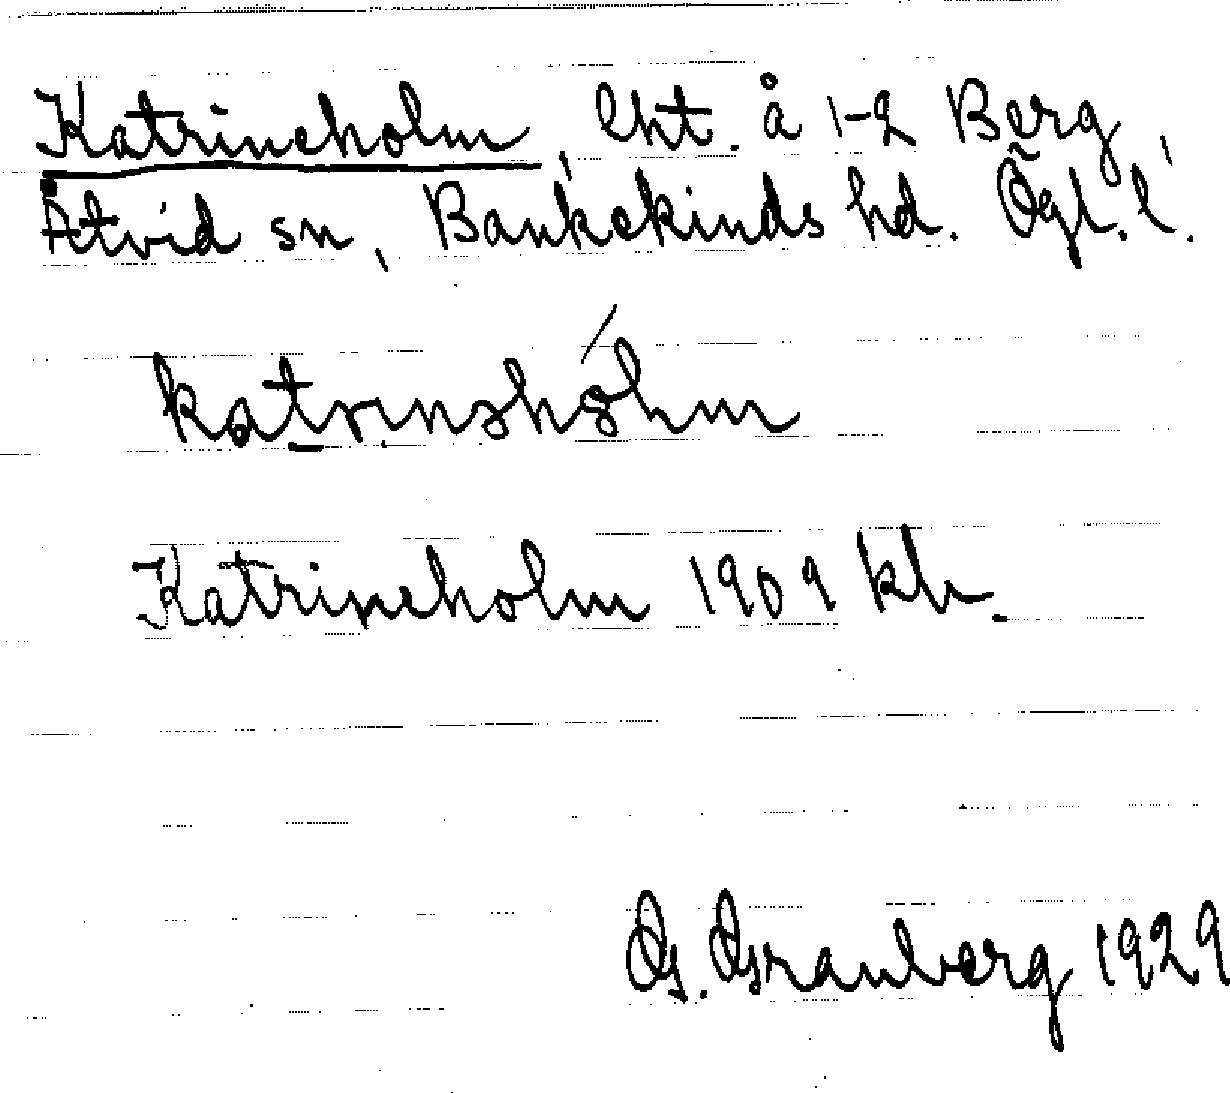 Katrineholm, lht. å 1-2 Berg,
Åtvid sn, Bankekinds hd. Ögl. l.
katrinəhólm
Katrineholm 1909 kb.
G. Granberg 1929